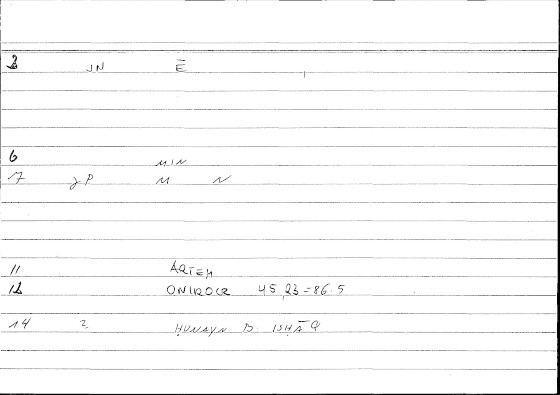 2 JN Ē
6 MIN
7 γP M N
11 ARTEM
12 ONIROCR 45,23=86.5
14 2 ḤUNAYN B. ISḤĀQ